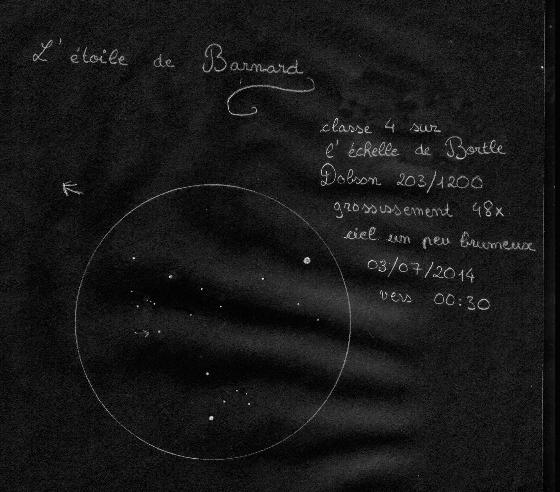 L'étoile de Barnard
classe 4 sur
l'échelle de Bortle
Dobson 203/1200
grossissement 48x
ciel un peu brumeux
03/07/2014
vers 00:30